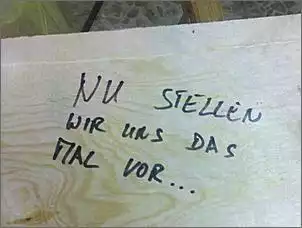 NU STELLEN
WIR UNS DAS
MAL VOR...